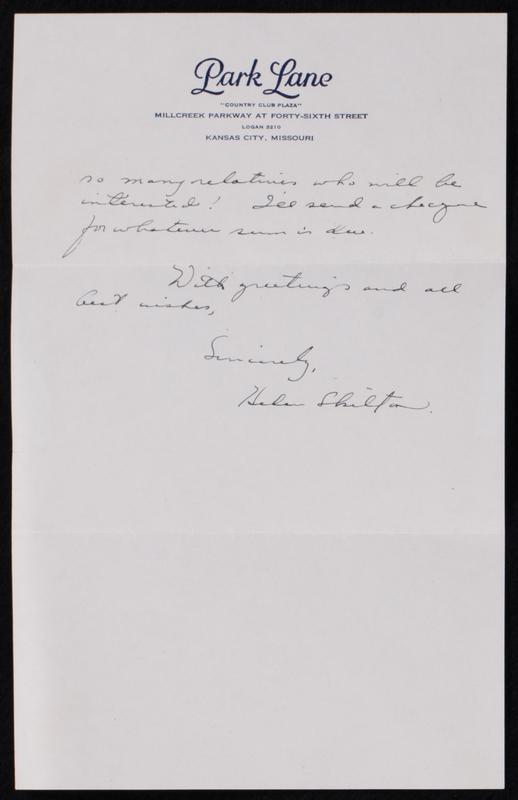 Park Lane
"COUNTRY CLUB PLAZA"
MILLCREEK PARKWAY AT FORTY-SIXTH STREET
LOGAN 3210
KANSAS CITY, MISSOURI
so many relatives who will be
interested! I'll send a cheque
for whatever sum is due.
With greetings and all
best wishes,
Sincerely,
Helen Skilton.